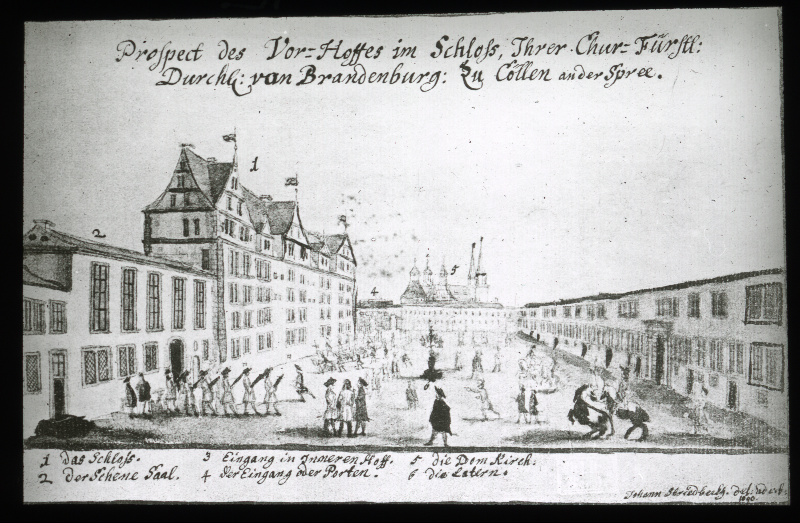 Prospect des Vor=Hoffes im Schloss, Ihrer Chur=Fürstl:
Durchl: van Brandenburg: Zu Cöllen an der Spree.
1
2
5
4
1 das Schloss.
2 der Schene Saal.
3 Eingang in Inneren Hoff.
4 der Eingang oder Porten.
5 die Dom Kirch.
6 die Latern.
Johann Stridbeckh. del:
1690.